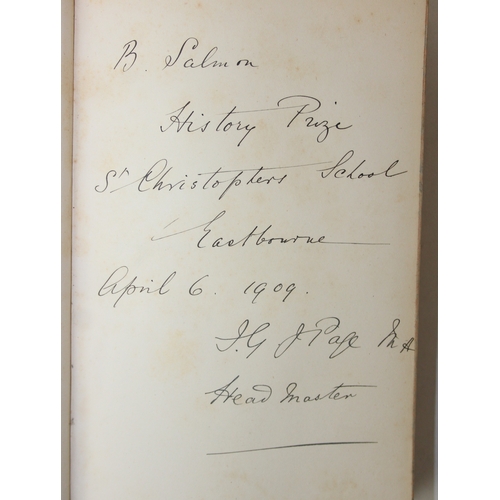 B. Salmon
History Prize
St Christophers School
Eastbourne
April 6. 1909.
J. G J Page MA
Head Master